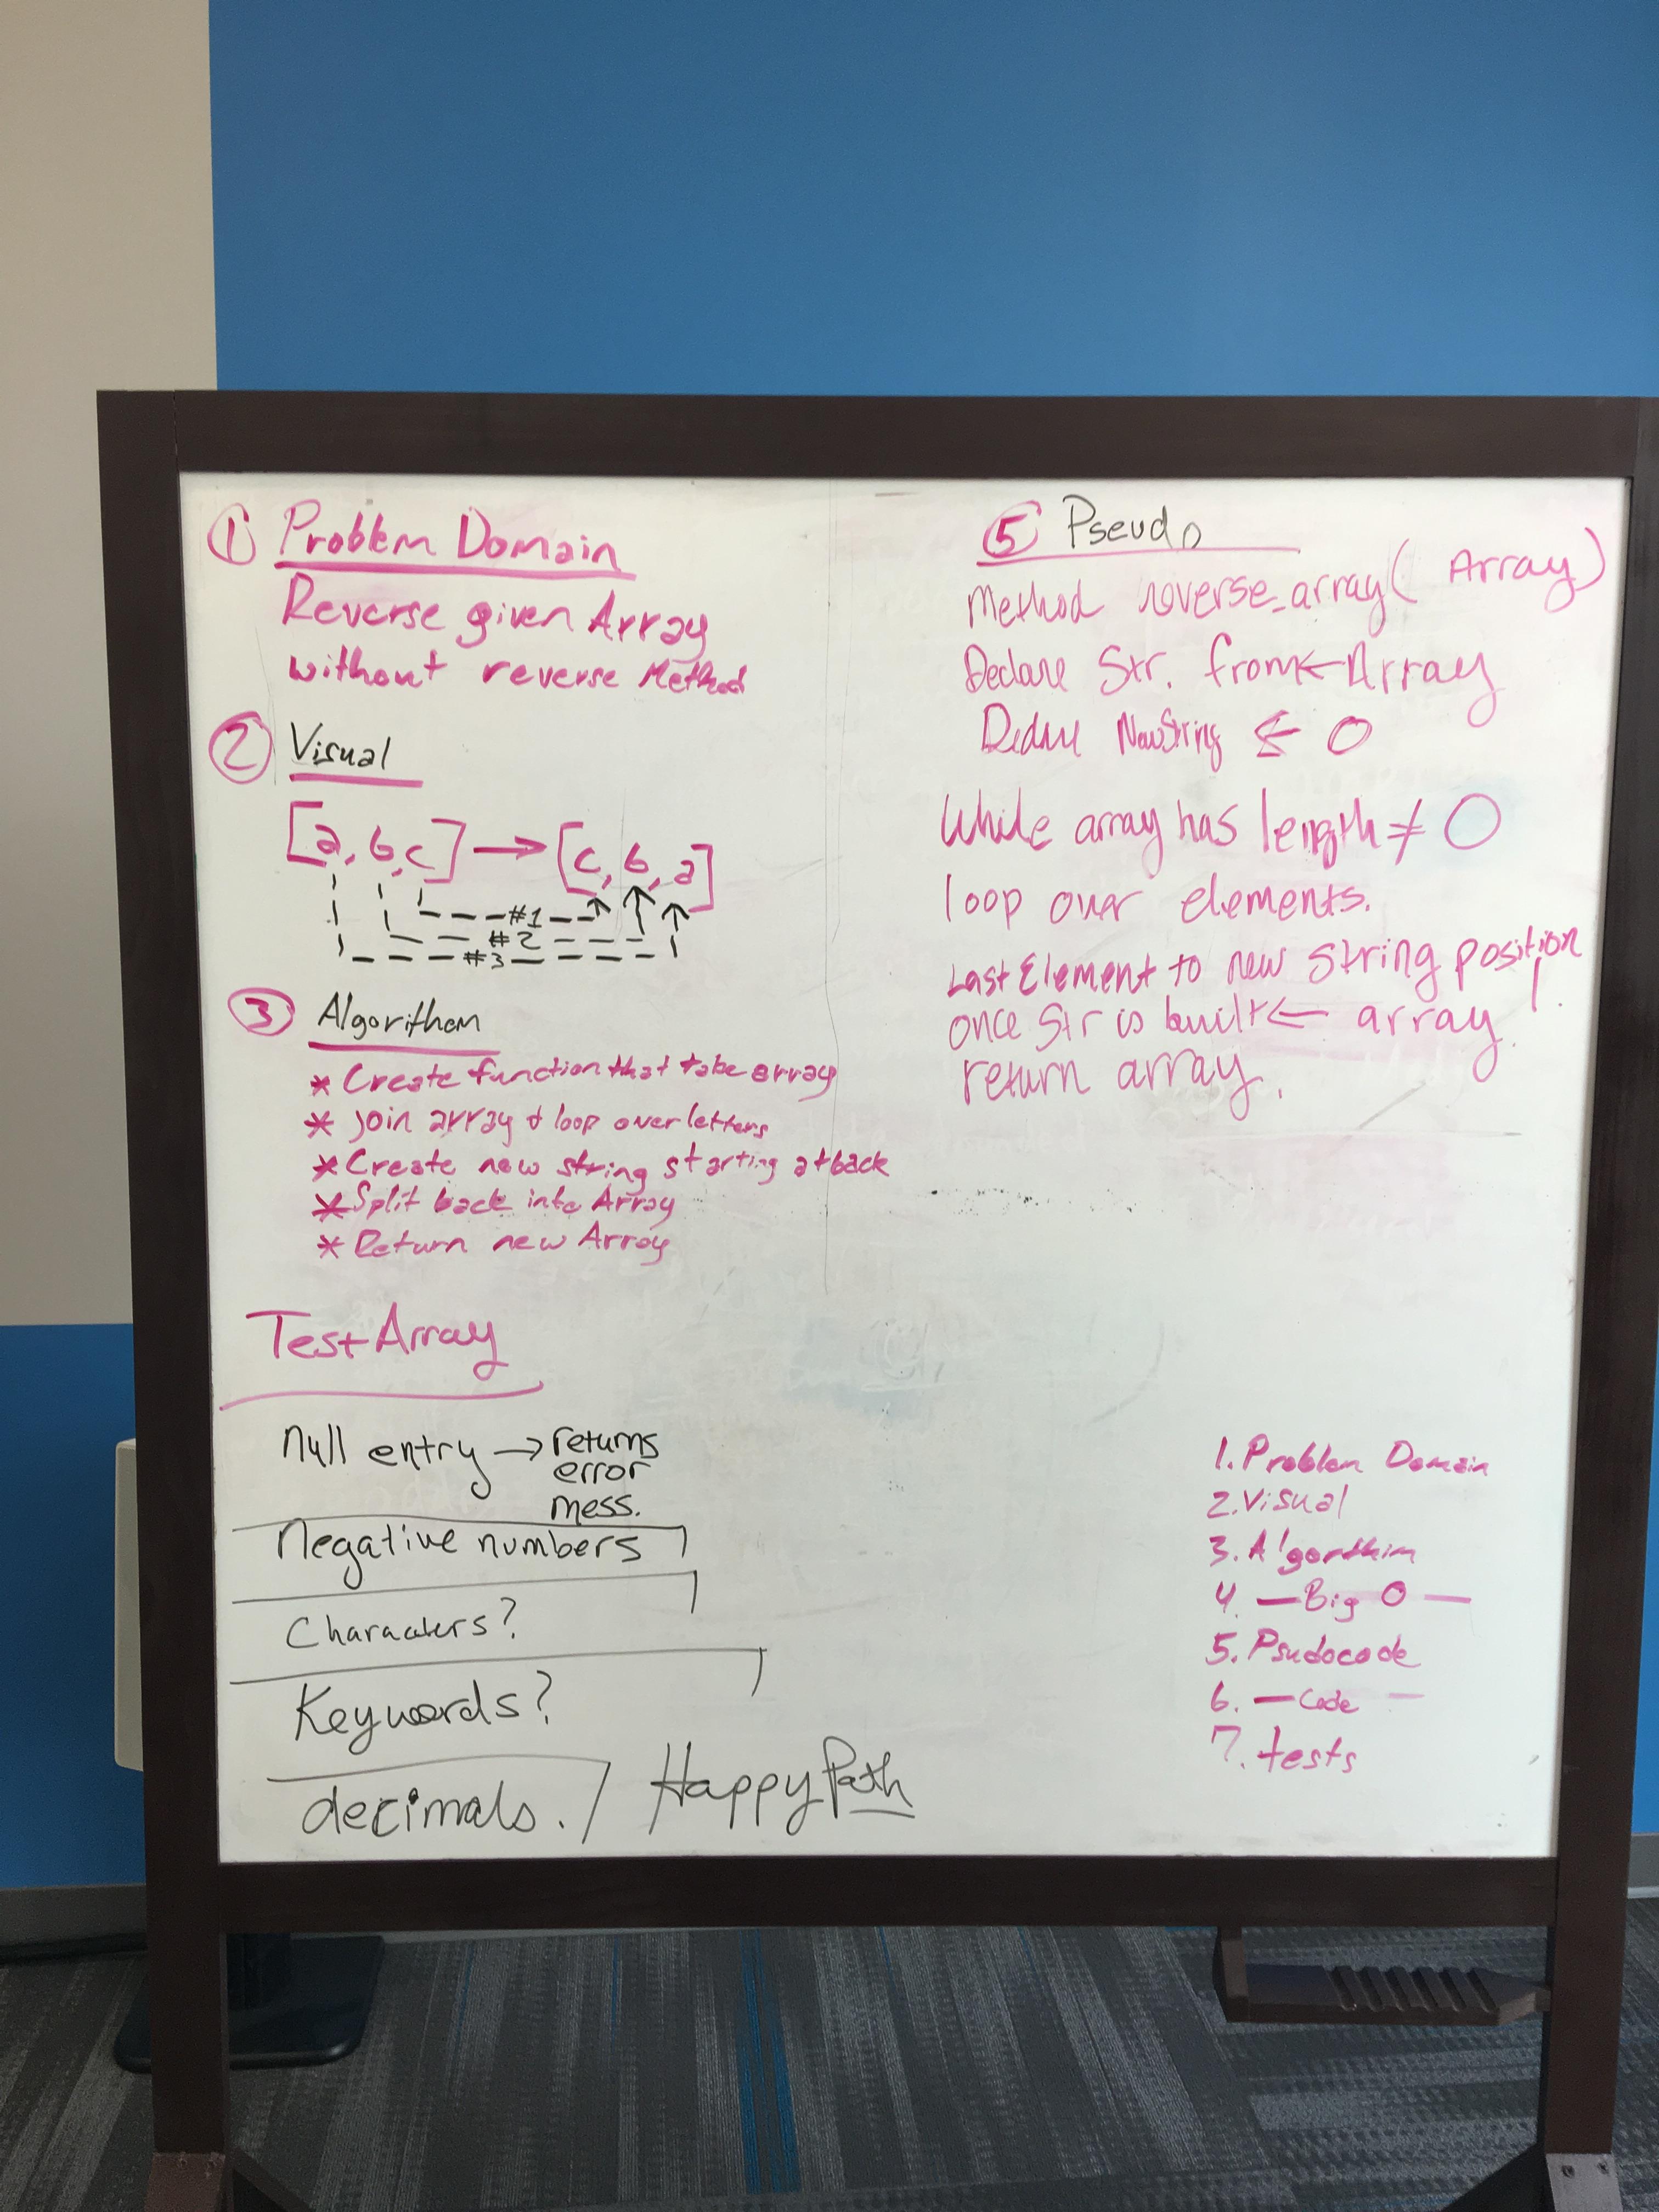 ① Problem Domain
Reverse given Array
without reverse Method
② Visual
[a, b, c] → [c, b, a]
#1
#2
#3
③ Algorithem
* Create function that take array
* join array + loop over letters
* Create new string starting at back
* Split back into Array
* Return new Array
Test Array
Null entry → returns
error
mess.
Negative numbers
Characters?
Keywords?
decimals. / Happy Path
⑤ Pseudo
Method reverse_array( Array)
Declare Str. from ← Array
NewString ← 0
While array has length ≠ 0
loop over elements.
Last Element to new String position
once Str is built ← array
return array.
1. Problem Domain
2. Visual
3. Algordthim
4. — Big O —
5. Psudocode
6. — Code —
7. tests